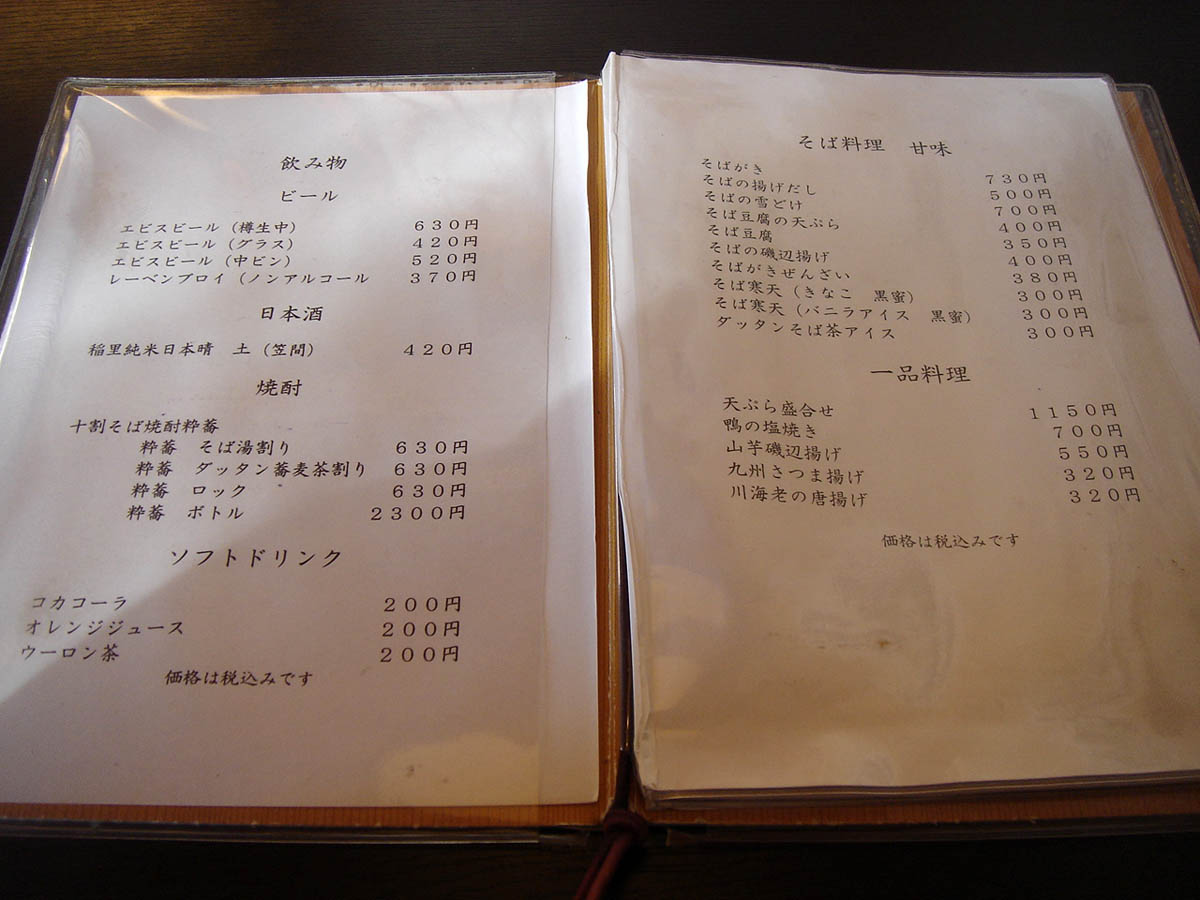 飲み物
ビール
エビスビール（樽生中） ６３０円
エビスビール（グラス） ４２０円
エビスビール（中ビン） ５２０円
レーベンブロイ（ノンアルコール ３７０円
日本酒
稲里純米日本晴　土（笠間） ４２０円
焼酎
十割そば焼酎粋蕎
粋蕎　そば湯割り ６３０円
粋蕎　ダッタン蕎麦茶割り ６３０円
粋蕎　ロック ６３０円
粋蕎　ボトル ２３００円
ソフトドリンク
コカコーラ ２００円
オレンジジュース ２００円
ウーロン茶 ２００円
価格は税込みです
そば料理　甘味
そばがき ７３０円
そばの揚げだし ５００円
そばの雪どけ ７００円
そば豆腐の天ぷら ４００円
そば豆腐 ３５０円
そばの磯辺揚げ ４００円
そばがきぜんざい ３８０円
そば寒天（きなこ　黒蜜） ３００円
そば寒天（バニラアイス　黒蜜） ３００円
ダッタンそば茶アイス ３００円
一品料理
天ぷら盛合せ １１５０円
鴨の塩焼き ７００円
山芋磯辺揚げ ５５０円
九州さつま揚げ ３２０円
川海老の唐揚げ ３２０円
価格は税込みです